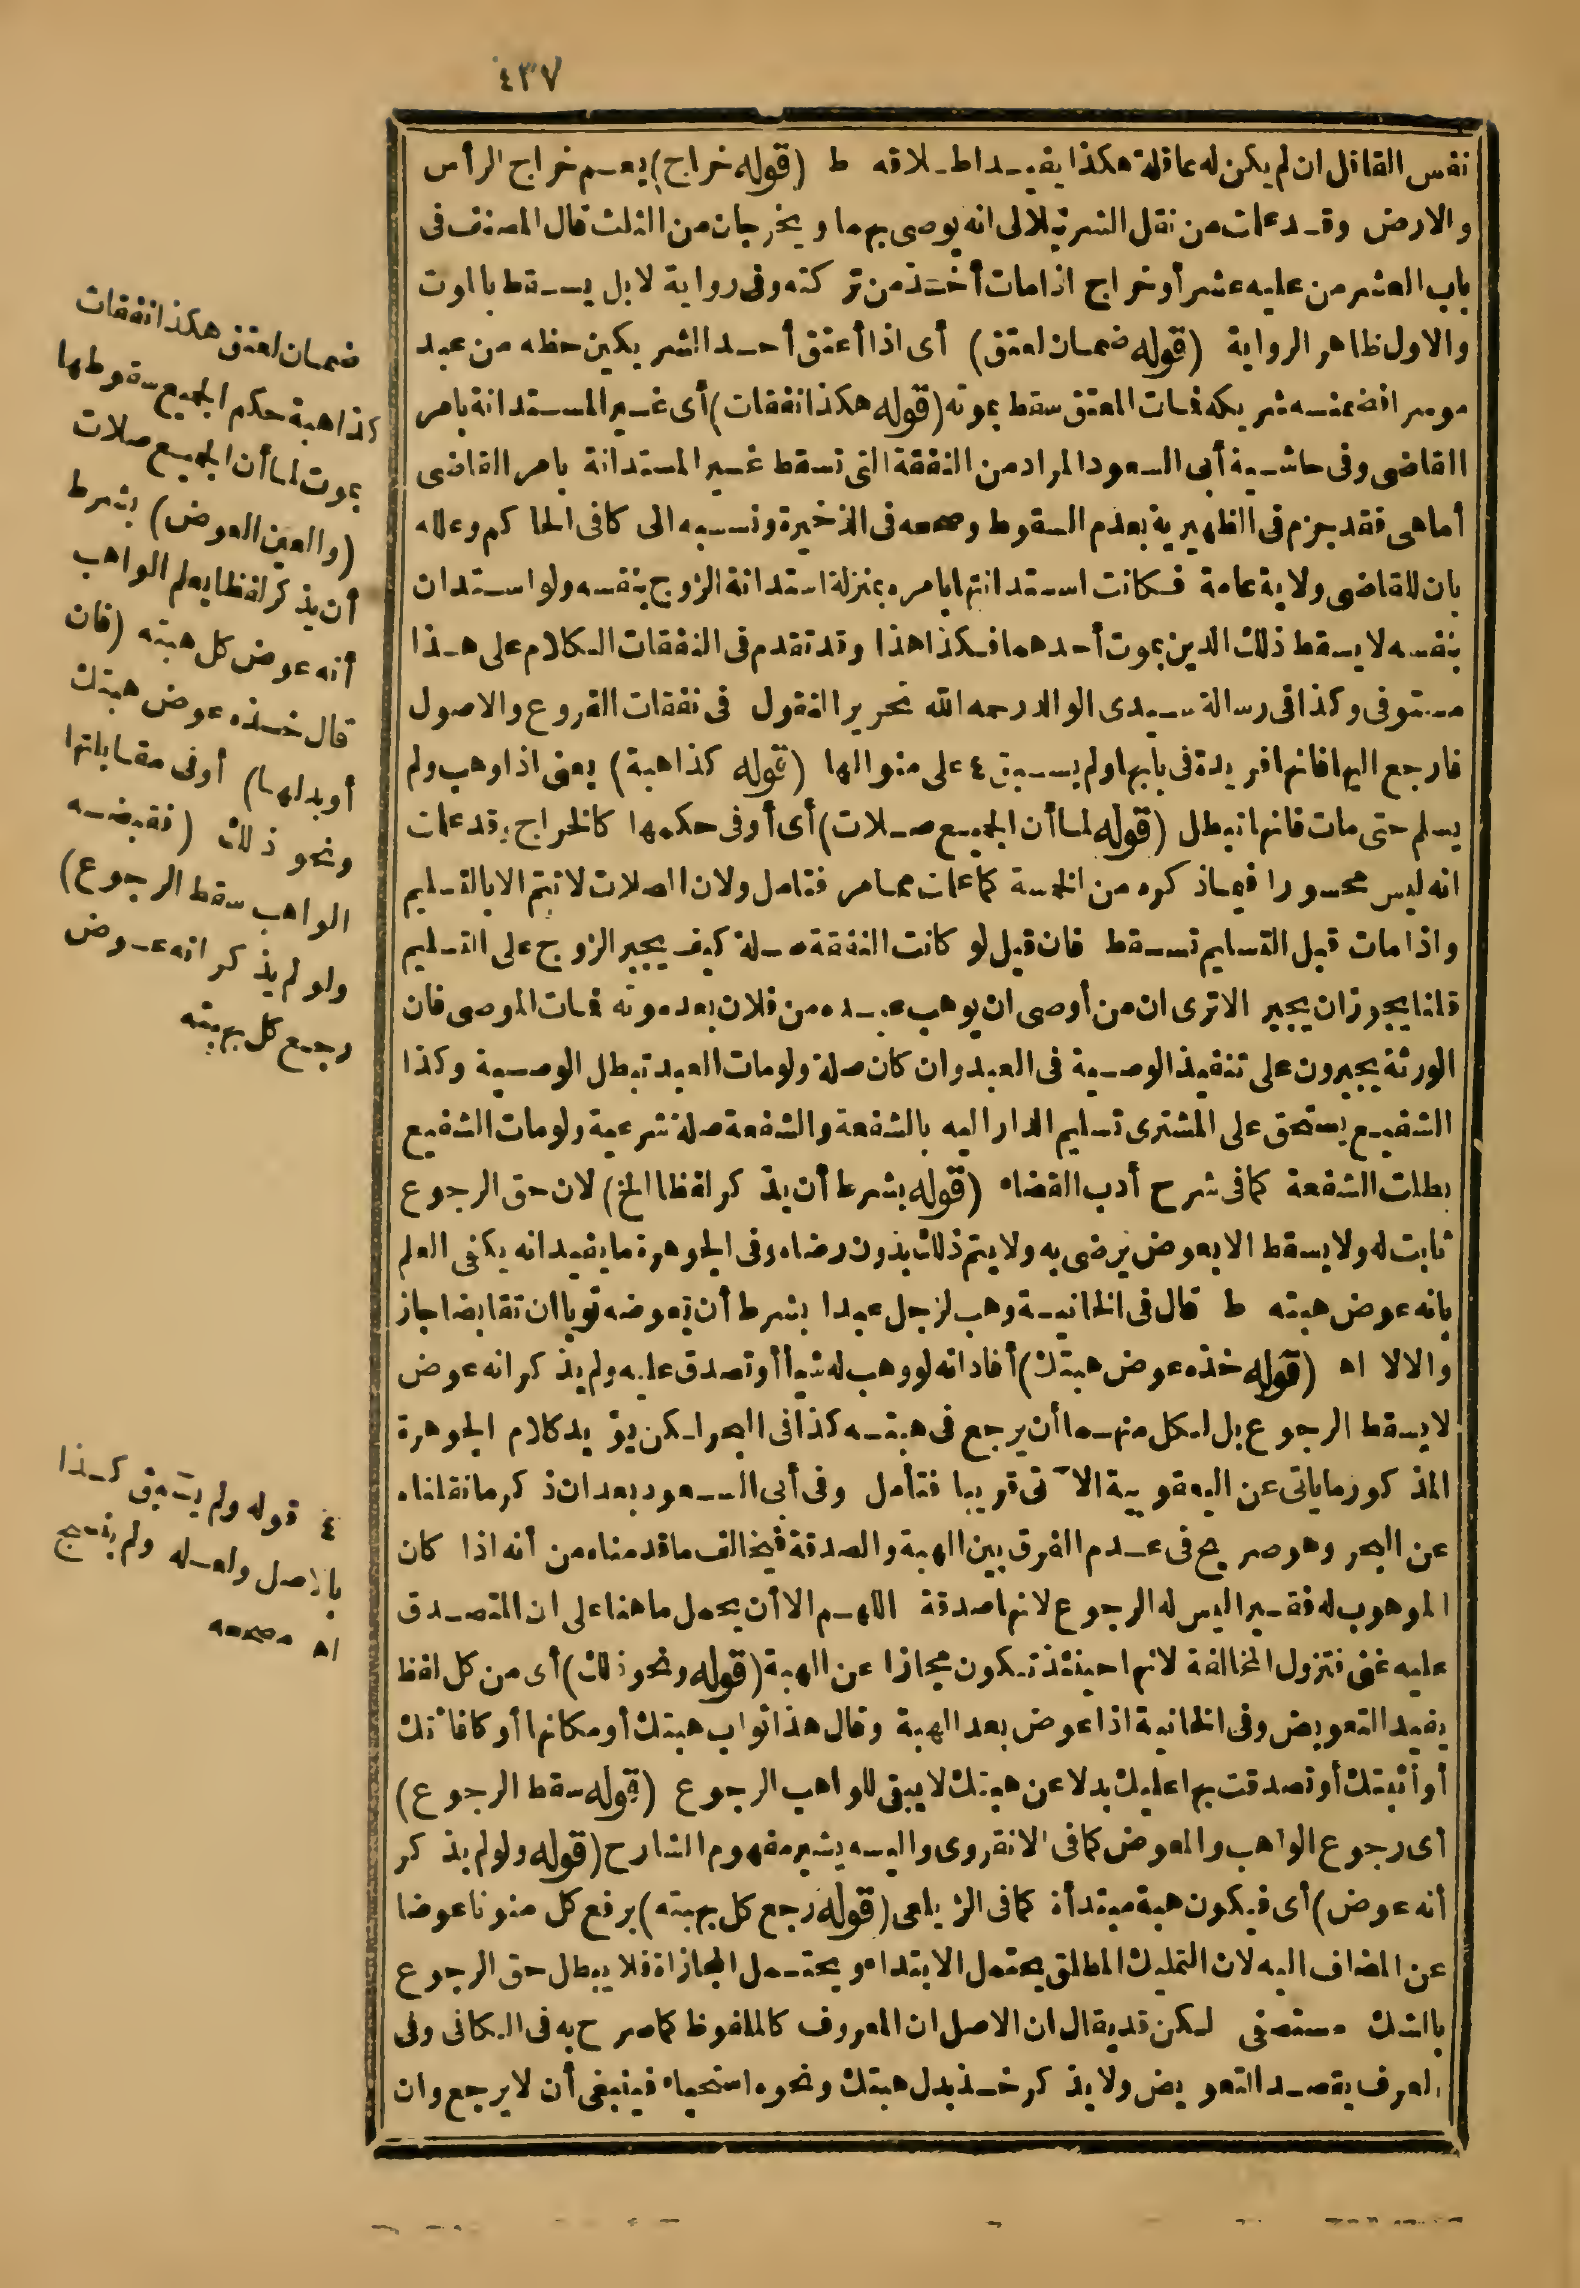 ٤٣٧
نفس القاتل ان لم يكن له عاقلة هكذا يفيد اطلاقه ط (قوله خراج) يعم خراج الرأس
والارض وقد علمت من نقل الشرنبلالى انه يوصى بهما ويخرجان من الثلث قال المصنف فى
باب العشر من عليه عشر أو خراج اذا مات أخذ من تركته وفى رواية لا بل يسقط بالموت
والاول ظاهر الرواية (قوله ضمان لعتق) أى اذا أعتق أحد الشريكين حظه من عبد
موسرا فضمنه شريكه فمات المعتق سقط بموته (قوله هكذا نفقات) أى غير المستدانة بامر
القاضى وفى حاشية أبى السعود المراد من النفقة التى تسقط غير المستدانة بامر القاضى
أما هى فقد جزم فى الظهيرية بعدم السقوط وصححه فى الذخيرة ونسبه الى كافى الحاكم وعلله
بان للقاضى ولاية عامة فكانت استدانتها بامره بمنزلة استدانة الزوج بنفسه ولو استدان
بنفسه لا يسقط ذلك الدين بموت أحدهما فكذا هذا وقد تقدم فى النفقات الكلام على هذا
مستوفى وكذا فى رسالة سيدى الوالد رحمه الله تحرير النقول فى نفقات الفروع والاصول
فارجع اليها فانها فريدة فى بابها ولم يسبق ٤ على منوالها (قوله كذا هبة) يعنى اذا وهب ولم
يسلم حتى مات فانها تبطل (قوله لما أن الجميع صلات) أى أو فى حكمها كالخراج وقد علمت
انه ليس محسورا فيما ذكره من الخمسة كما علمت مما مر فتامل ولان الصلات لا تتم الا بالتسليم
واذا مات قبل التسليم تسقط فان قيل لو كانت النفقة صلة كيف يجبر الزوج على التسليم
قلنا يجوز ان يجبر الا ترى ان من أوصى ان يوهب عبده من فلان بعد موته فمات الموصى فان
الورثة يجبرون على تنفيذ الوصية فى العبد وان كان صلة ولو مات العبد تبطل الوصية وكذا
الشفيع يستحق على المشترى تسليم الدار اليه بالشفعة والشفعة صلة شرعية ولو مات الشفيع
بطلت الشفعة كما فى شرح أدب القضاء (قوله بشرط أن يذكر لفظا الخ) لان حق الرجوع
ثابت له ولا يسقط الا بعوض يرضى به ولا يتم ذلك بدون رضاه وفى الجوهرة ما يفيد انه يكفى العلم
بانه عوض هبته ط قال فى الخانية وهب لرجل عبدا بشرط أن يعوضه ثوبا ان تقابضا جاز
والا لا اه (قوله خذه عوض هبتك) أفاد انه لو وهب له شيأ أو تصدق عليه ولم يذكر انه عوض
لا يسقط الرجوع بل لكل منهما أن يرجع فى هبته كذا فى البحر لكن يؤيد كلام الجوهرة
المذكور ما ياتى عن اليعقوبية الآتى قريبا فتأمل وفى أبى السعود بعد ان ذكر ما نقلناه
عن البحر وهو صريح فى عدم الفرق بين الهبة والصدقة فيخالف ما قدمناه من أنه اذا كان
الموهوب له فقير اليس له الرجوع لانها صدقة اللهم الا أن يحمل ما هنا على ان المتصدق
عليه غنى فتزول المخالفة لانها حينئذ تكون مجازا عن الهبة (قوله ونحو ذلك) أى من كل لفظ
يفيد التعويض وفى الخانية اذا عوض بعد الهبة وقال هذا ثواب هبتك أو مكانها أو كافأتك
أو أثبتك أو تصدقت بها عليك بدلا عن هبتك لا يبقى للواهب الرجوع (قوله سقط الرجوع)
أى رجوع الواهب والمعوض كما فى الانقروى واليه يشير مفهوم الشارح (قوله ولو لم يذكر
أنه عوض) أى فيكون هبة مبتدأة كما فى الزيلعى (قوله رجع كل بهبته) برفع كل منونا عوضا
عن المضاف اليه لان التمليك المطلق يحتمل الابتداء ويحتمل المجازاة فلا يبطل حق الرجوع
بالشك مستصفى لكن قد يقال ان الاصل ان المعروف كالملفوظ كما صرح به فى الكافى وفى
العرف يقصد التعويض ولا يذكر خذ بدل هبتك ونحوه استحياء فينبغى أن لا يرجع وان
ضمان لعتق هكذا نفقات
كذا هبة حكم الجميع سقوطها
بموت لما أن الجميع صلات
(والعين العوض) بشرط
أن يذكر لفظا يعلم الواهب
أنه عوض كل هبته (فان
قال خذه عوض هبتك
أو بدلها) أو فى مقابلتها
ونحو ذلك (فقبضه
الواهب سقط الرجوع)
ولو لم يذكر انه عوض
رجع كل بهبته
٤ قوله ولم يسبق كذا
بالاصل ولعله ولم ينسج
اه مصححه